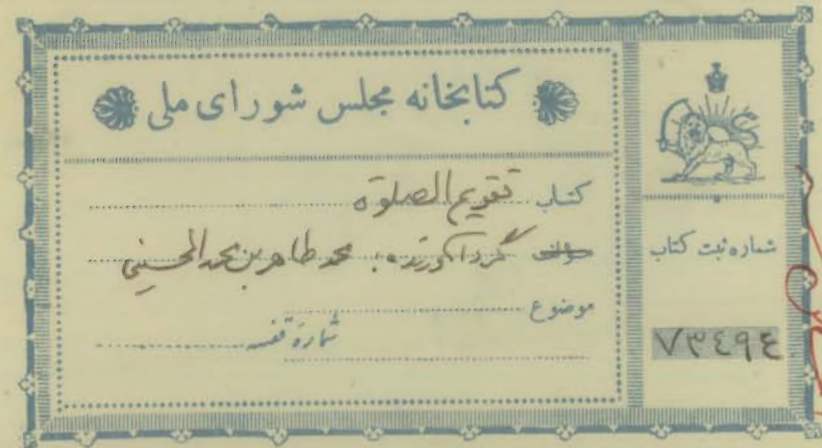 کتابخانه مجلس شورای ملی
کتاب تقویم الصلوة
مؤلف گردآورنده: محمد طاهر بن محمد الحسینی
موضوع
شماره قفسه
شماره ثبت کتاب
٧٣٤٩٤